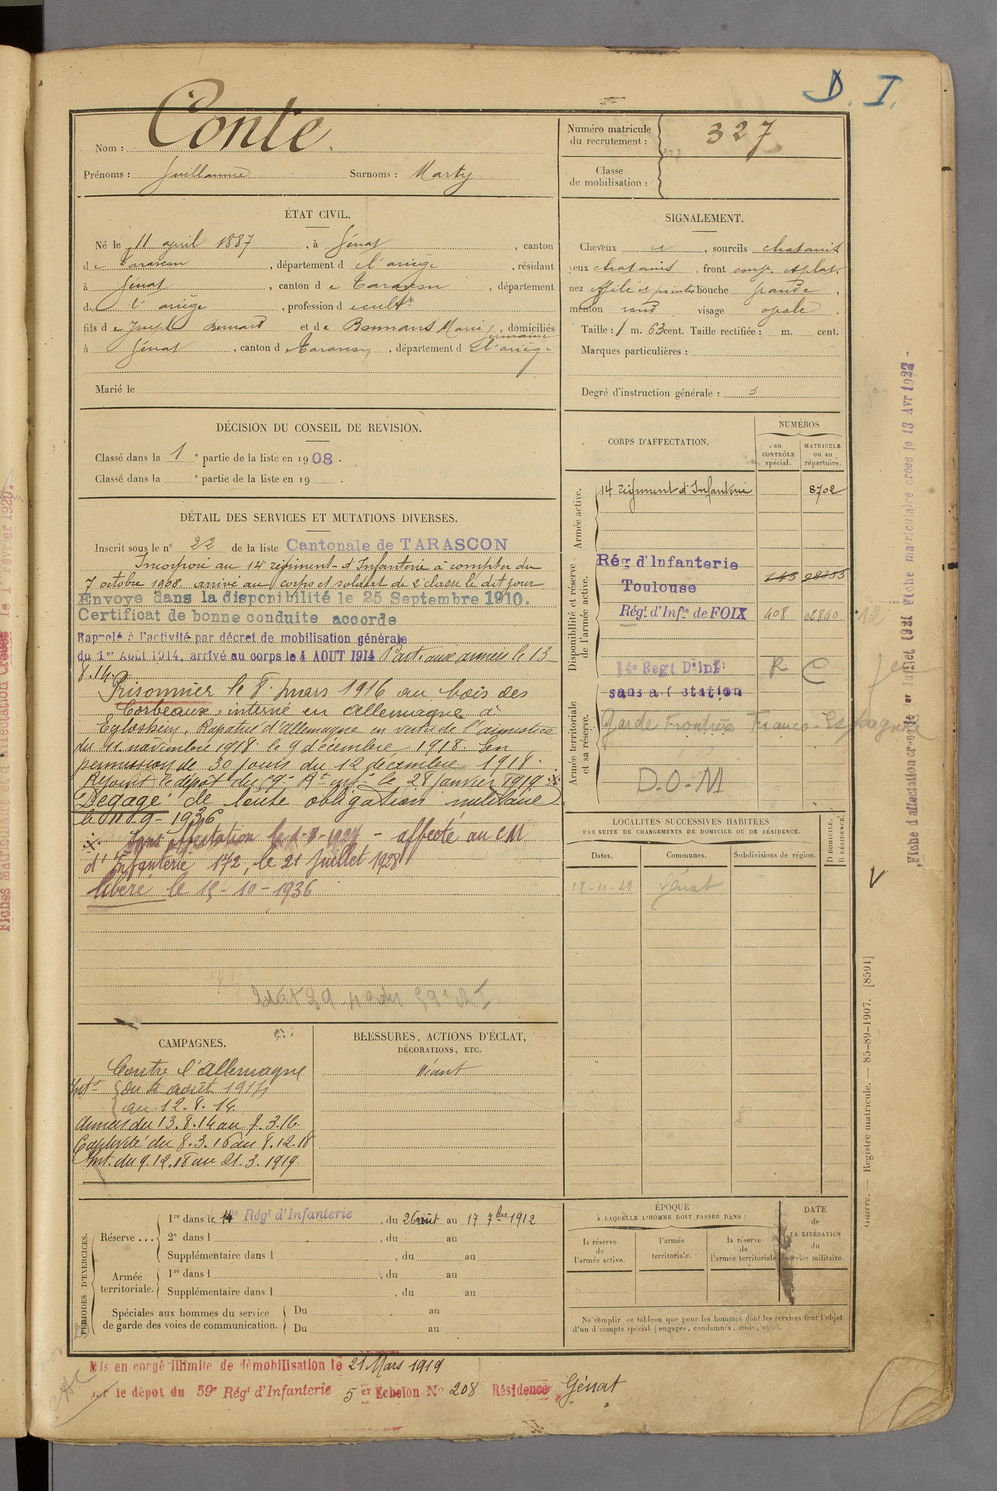 D. I.
Nom : Conte.
Prénoms : Guillaume Surnoms : Marty
Numéro matricule du recrutement : 327
Classe de mobilisation :
ÉTAT CIVIL.
Né le 11 avril 1887, à Génat, canton
de Tarascon, département de l'ariège, résidant
à Génat, canton de Tarascon, département
de l'ariège, profession de cultr
fils de Joseph Bernard et de Bonnans Marie, domiciliés
à Génat, canton de Tarascon, département de l'ariège
Marié le
SIGNALEMENT.
Cheveux, sourcils chatains
yeux chatains, front
nez bouche grande,
menton rond visage ovale
Taille : 1 m. 63 cent. Taille rectifiée : m. cent.
Marques particulières :
Degré d'instruction générale : 3
DÉCISION DU CONSEIL DE REVISION.
Classé dans la 1e partie de la liste en 1908.
Classé dans la e partie de la liste en 19 .
DÉTAIL DES SERVICES ET MUTATIONS DIVERSES.
Inscrit sous le n° 22 de la liste Cantonale de TARASCON
Incorporé au 14 régiment d'Infanterie à compter du
7 octobre 1908. arrivé au corps et soldat de 2e classe le dit jour
Envoyé dans la disponibilité le 25 Septembre 1910.
Certificat de bonne conduite accordé
Rappelé à l'activité par décret de mobilisation générale
du 1er Août 1914, arrivé au corps le 4 AOUT 1914 Parti aux armées le 13
8.14.
Prisonnier le 8 mars 1916 au bois des
Corbeaux, interné en allemagne à
Eglosheim, Rapatrié d'Allemagne en vertu de l'armistice
du 11 novembre 1918. le 9 décembre 1918. En
permission de 30 jours du 12 decembre 1918.
Rejoint le dépôt du 59e Rt infie le 28 Janvier 1919.
Dégagé de toute obligation militaire
1936
Sans affectation le - affecté au CM
d'Infanterie 172, le 21 Juillet 1928
libéré le 15-10-1936
CORPS D'AFFECTATION.
NUMÉROS
au CONTRÔLE spécial.
MATRICULE ou au répertoire.
Armée active.
14 régiment d'Infanterie 8702
Disponibilité et réserve de l'armée active.
Rég d'Infanterie
Toulouse
Régt d'Infie de FOIX 408 02840
14e Regt D'Inf
sans affectation
R C
Armée territoriale et sa réserve.
Garde Frontière Franco-Espagnole
D.O.M
LOCALITÉS SUCCESSIVES HABITÉES
PAR SUITE DE CHANGEMENTS DE DOMICILE OU DE RÉSIDENCE.
Dates. Communes. Subdivisions de région. D DOMICILE. R RÉSIDENCE.
Génat
CAMPAGNES.
Contre l'allemagne
Intr du 4 août 1914
au 12.8.14.
Armées du 13.8.14 au 7.3.16.
Captivité du 8.3.16 au 8.12.18
Int. du 9.12.18 au 21.3.1919.
BLESSURES, ACTIONS D'ÉCLAT,
DÉCORATIONS, ETC.
Néant
PÉRIODES D'EXERCICES.
Réserve ...
1re dans le 14e Régt d'Infanterie, du 26 août au 17 7bre 1912
2e dans l , du au
Supplémentaire dans l , du au
Armée territoriale.
1re dans l , du au
Supplémentaire dans l , du au
Spéciales aux hommes du service de garde des voies de communication.
Du au
Du au
ÉPOQUE
À LAQUELLE L'HOMME DOIT PASSER DANS :
la réserve de l'armée active.
l'armée territoriale.
la réserve de l'armée territoriale
DATE de LA LIBÉRATION du service militaire.
Ne remplir ce tableau que pour les hommes dont les services font l'objet
d'un décompte spécial (engagés, condamnés, omis, etc.).
Mis en congé illimité de démobilisation le 21 Mars 1919
par le dépôt du 59e Régt d'Infanterie 5 er Echelon No 208 Résidence Génat
Guerre. — Registre matricule. — 85-89-1907. [8591]